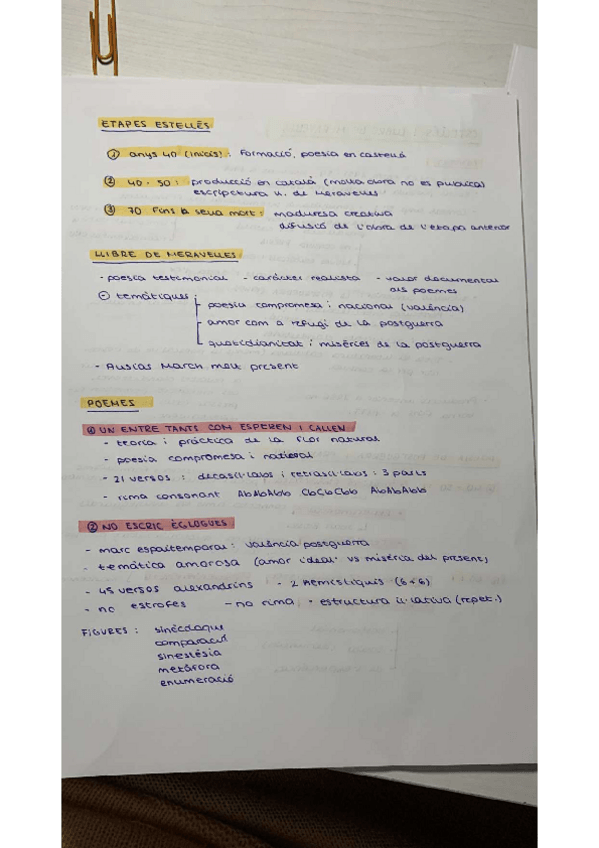 ETAPES ESTELLÉS
① anys 40 (inicis): Formació, poesia en castellà
② 40 - 50: producció en català (molta obra no es publica)
escriptura ll. de Meravelles
③ 70 Fins la seua mort: maduresa creativa
difusió de l'obra de l'etapa anterior
LLIBRE DE MERAVELLES
- poesia testimonial - caràcter realista - valor documental
als poemes
- temàtiques:
poesia compromesa i nacional (València)
amor com a refugi de la postguerra
quotidianitat i misèries de la postguerra
- Ausias March molt present
POEMES
① UN ENTRE TANTS COM ESPEREN I CALLEN
- teoria i pràctica de la flor natural
- poesia compromesa i nacional
- 21 versos: decasíl·labs i tetrasíl·labs: 3 parts
- rima consonant AbAbAbb CbCbCbb AbAbAbb
② NO ESCRIC ÈGLOGUES
- marc espaitemporal: València postguerra
- temàtica amorosa (amor ideal vs misèria del present)
- 45 versos alexandrins - 2 hemistiquis (6+6)
- no estrofes - no rima - estructura il·lativa (repet.)
FIGURES: sinècdoque
comparació
sinestèsia
metàfora
enumeració